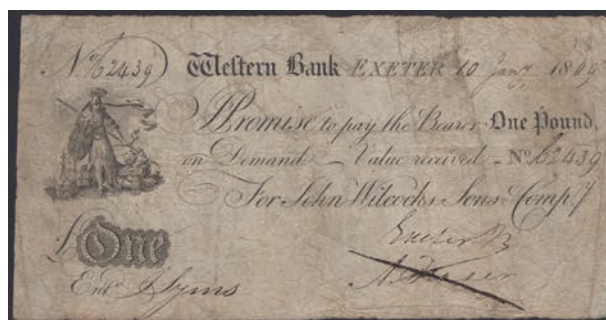 No 62439 Western Bank EXETER 10 Jany 1809
I Promise to pay the Bearer One Pound,
on Demand Value received No 62439
For John Wilcocks Sons & Compy
£ One
Entd